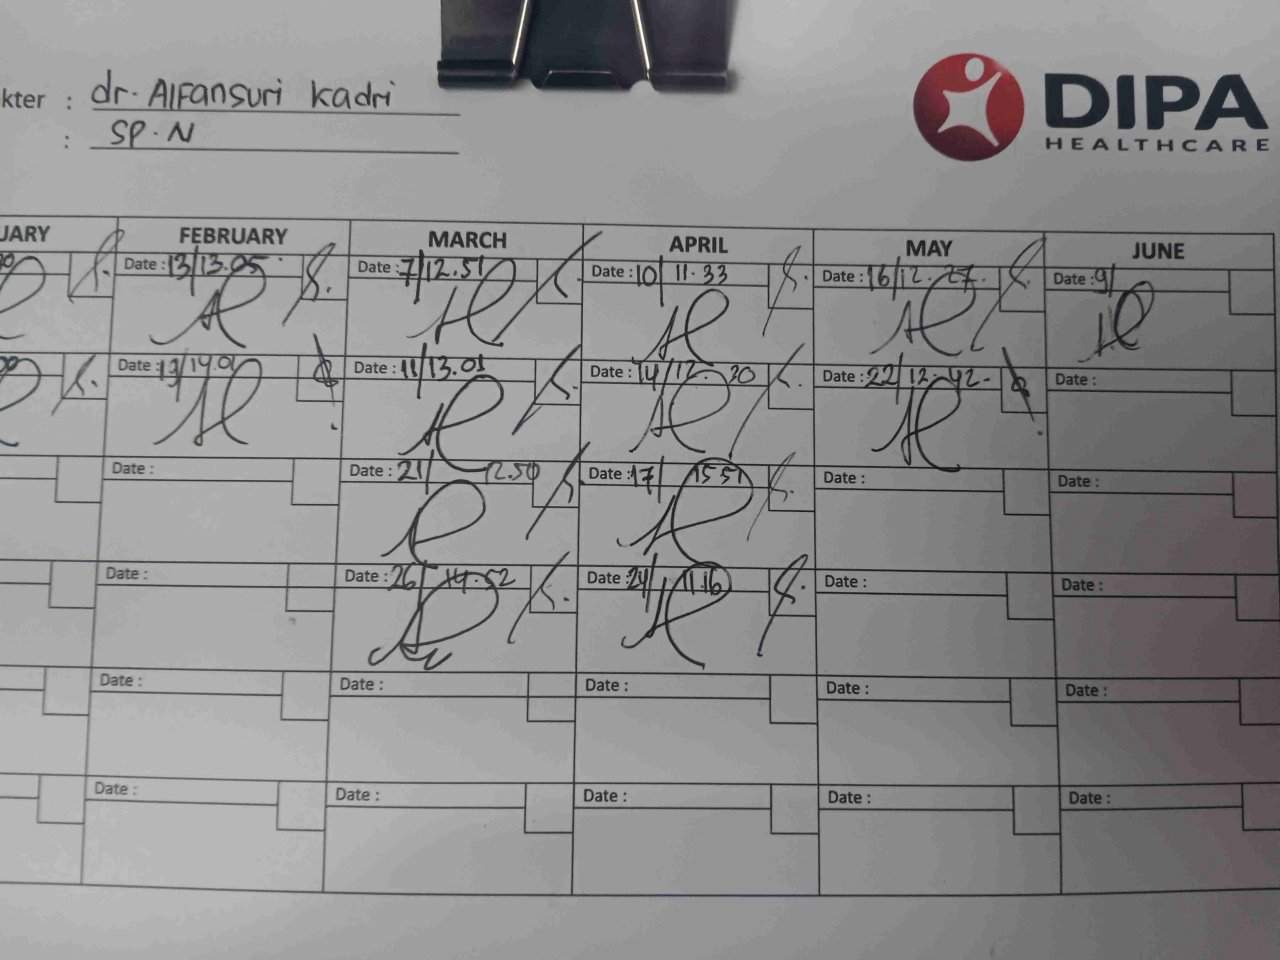 kter : dr. Alfansuri Kadri
: SP.N
DIPA
HEALTHCARE
UARY FEBRUARY MARCH APRIL MAY JUNE
Date : 13/13.05 Date : 7/12.51 Date : 10/ 11.33 Date : 16/12.27. Date : 9/
Date : 14.01 Date : 11/13.01 Date : 14/12.30 Date : 22/12.42. Date :
Date : Date : 21/ 12.50 Date : 17/ 15 51 Date : Date :
Date : Date : 26/ 14.52 Date : 24/ 11.16 Date : Date :
Date : Date : Date : Date : Date :
Date : Date : Date : Date : Date :